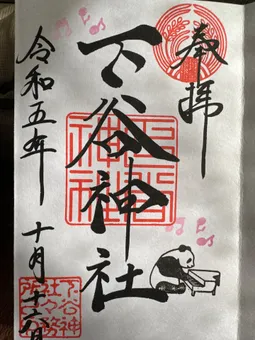 奉拝
下谷神社
令和五年十月十六日
下谷神社
下谷神社々務所